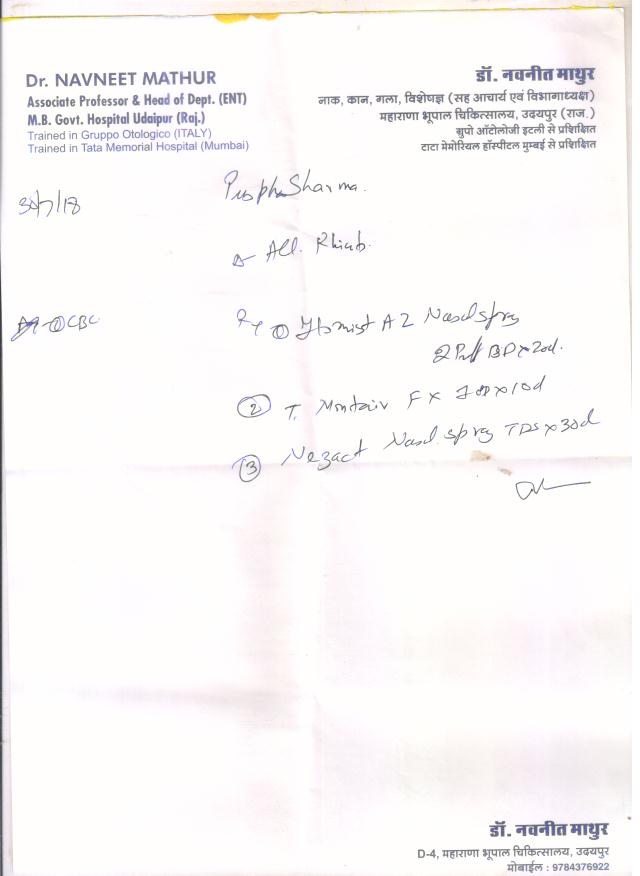 Dr. NAVNEET MATHUR
Associate Professor & Head of Dept. (ENT)
M.B. Govt. Hospital Udaipur (Raj.)
Trained in Gruppo Otologico (ITALY)
Trained in Tata Memorial Hospital (Mumbai)
डॉ. नवनीत माथुर
नाक, कान, गला, विशेषज्ञ (सह आचार्य एवं विभागाध्यक्ष)
महाराणा भूपाल चिकित्सालय, उदयपुर (राज.)
ग्रुपो ऑटोलोजी इटली से प्रशिक्षित
टाटा मेमोरियल हॉस्पीटल मुम्बई से प्रशिक्षित
30/7/18
Puspha Sharma.
All. Rhinb.
① CBC
Rx ① AZ Nasal spray
2 Puff BD x 20d.
② T. Montair FX x 10d
③ Nezact Nasal spray TDS x 30d
डॉ. नवनीत माथुर
D-4, महाराणा भूपाल चिकित्सालय, उदयपुर
मोबाईल : 9784376922